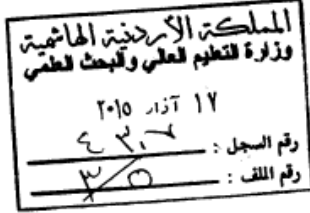 المملكة الأردنية الهاشمية
وزارة التعليم العالي والبحث العلمي
١٧ آذار ٢٠١٥
رقم السجل :
رقم الملف : ٣/٥